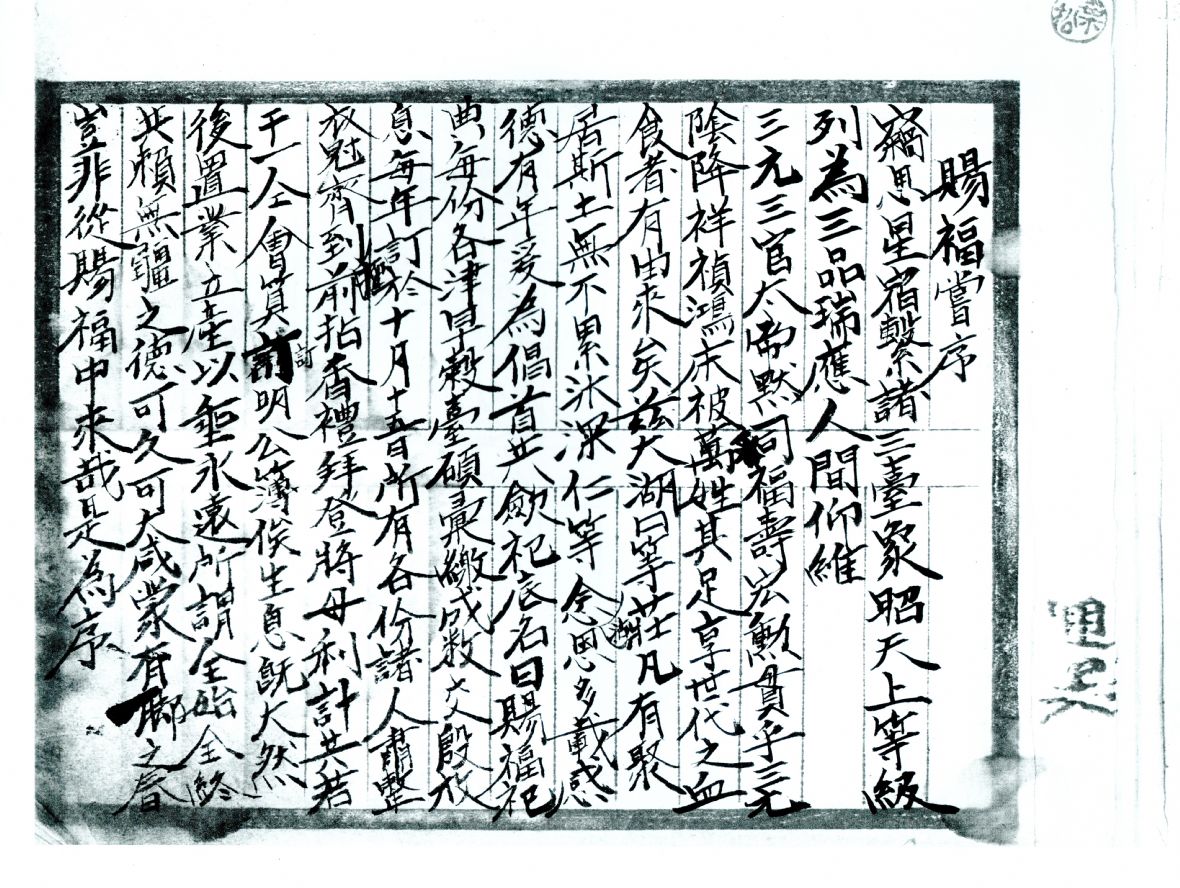 賜福嘗序
竊思星宿繫諸三臺象昭天上等級
列為三品瑞應人間仰維
三元三官大帝默司福壽宏勳貫乎三元
陰降祥禎鴻庥被萬姓其足享世代之血
食者有由來矣茲大湖曰等庄凡有聚
居斯土無不累沐深仁等念恩多載感
德有年爰為倡首共歛祀底名曰賜福祀
典每份各津早穀臺碩彙繳成数交殷放
息每年訂於十月十五日所有各份諸人肅整
衣冠齊到前拈香禮拜登將母利計共若
干一仝會算訂明公簿俟生息既大然
後置業立產以垂永遠所謂全始全終
共賴無疆之德可久可大咸蒙有腳之春
豈非從賜福中來哉是為序